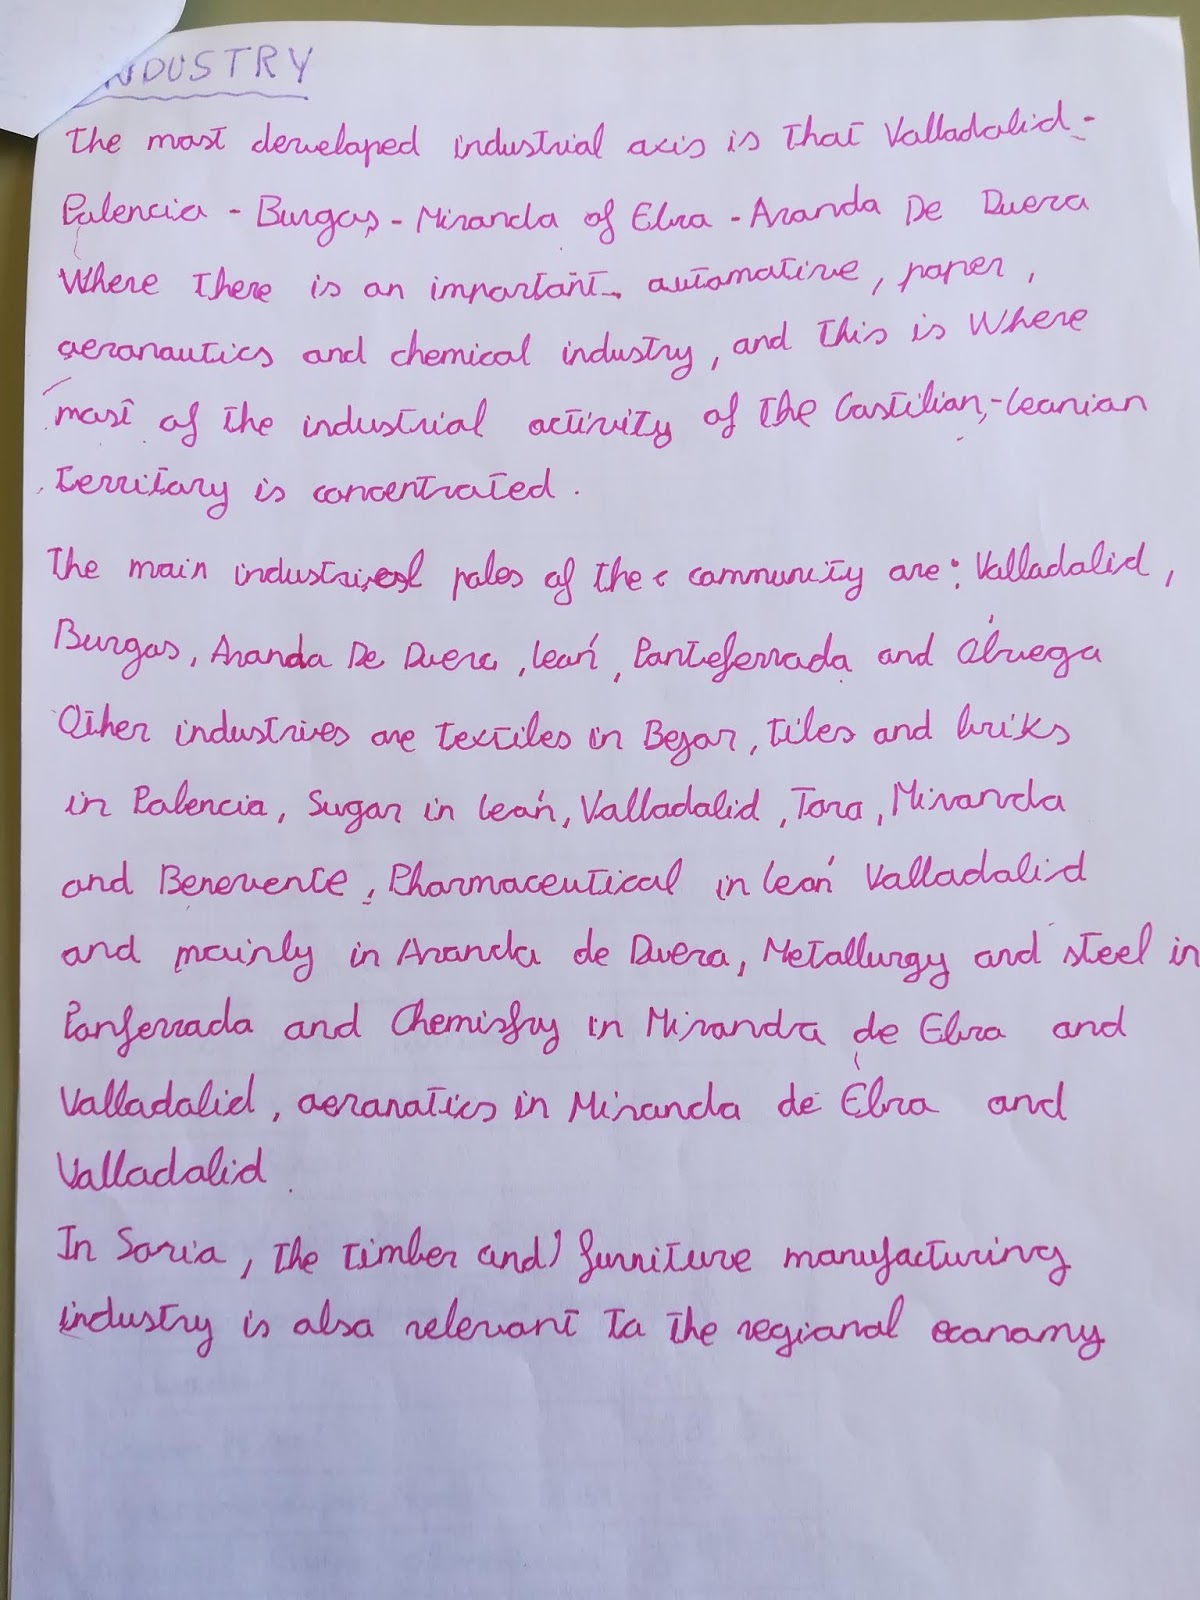 INDUSTRY
The most derveloped industrial axis is that Valladolid-
Palencia - Burgos - Miranda of Ebro - Aranda De Duero
Where there is an important automotive, paper,
aeronautics and chemical industry, and this is Where
most of the industrial activity of the Castilian,-leonian
territory is concentrated.
The main industrial poles of the community are: Valladolid,
Burgos, Aranda De Duero, león, Ponteferrada and Ólvega
Other industries are textiles in Bejar, tiles and briks
in Palencia, Sugar in león, Valladolid, Toro, Miranda
and Benevente, Pharmaceutical in león Valladolid
and mainly in Aranda de Duero, Metallurgy and steel in
Ponferrada and Chemistry in Miranda de Ebro and
Valladolid, aeronatics in Miranda de Ebro and
Valladolid
In Soria, the timber and furniture manufacturing
industry is also relevant to the regional economy